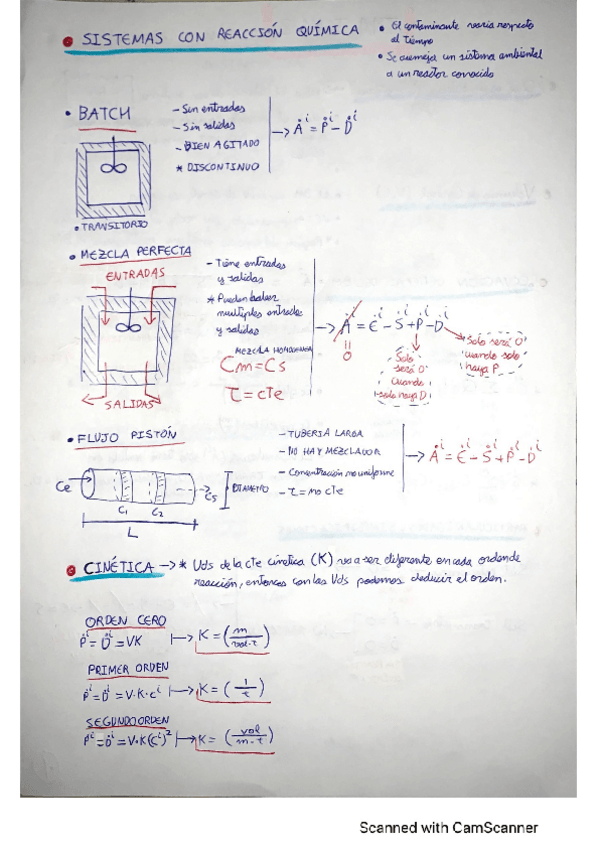 SISTEMAS CON REACCIÓN QUÍMICA
• El contaminante varia respecto
al Tiempo
• Se asemeja un sistema ambiental
a un reactor conocido
• BATCH
- Sin entradas
- Sin salidas
- BIEN AGITADO
* DISCONTINUO
→ Ȧⁱ = Ṗⁱ - Ḋⁱ
• TRANSITORIO
• MEZCLA PERFECTA
ENTRADAS
SALIDAS
- Tiene entradas
y salidas
* Pueden haber
multiples entradas
y salidas
MEZCLA HOMOGENEA
Cm = Cs
τ = cTe
→ Ȧⁱ = Ėⁱ - Ṡⁱ + Ṗⁱ - Ḋⁱ
0
Solo
será 0
Cuando
solo haya D
Solo será 0
cuando solo
haya P
• FLUJO PISTÓN
- TUBERIA LARGA
- NO HAY MEZCLADOR
- Concentración no uniforme
- τ = no cTe
→ Ȧⁱ = Ėⁱ - Ṡⁱ + Ṗⁱ - Ḋⁱ
Ce
C1 C2
Cs
DIAMETRO
L
CINÉTICA → * Uds de la cTe cinetica (K) va a ser diferente en cada orden de
reacción, entonces con las Uds podemos deducir el orden.
ORDEN CERO
Ṗⁱ = Ḋⁱ = VK ↦ K = (m/vol·t)
PRIMER ORDEN
Ṗⁱ = Ḋⁱ = V·K·cⁱ ↦ K = (1/t)
SEGUNDO ORDEN
Ṗⁱ = Ḋⁱ = V·K(cⁱ)² ↦ K = (vol/m·t)
Scanned with CamScanner